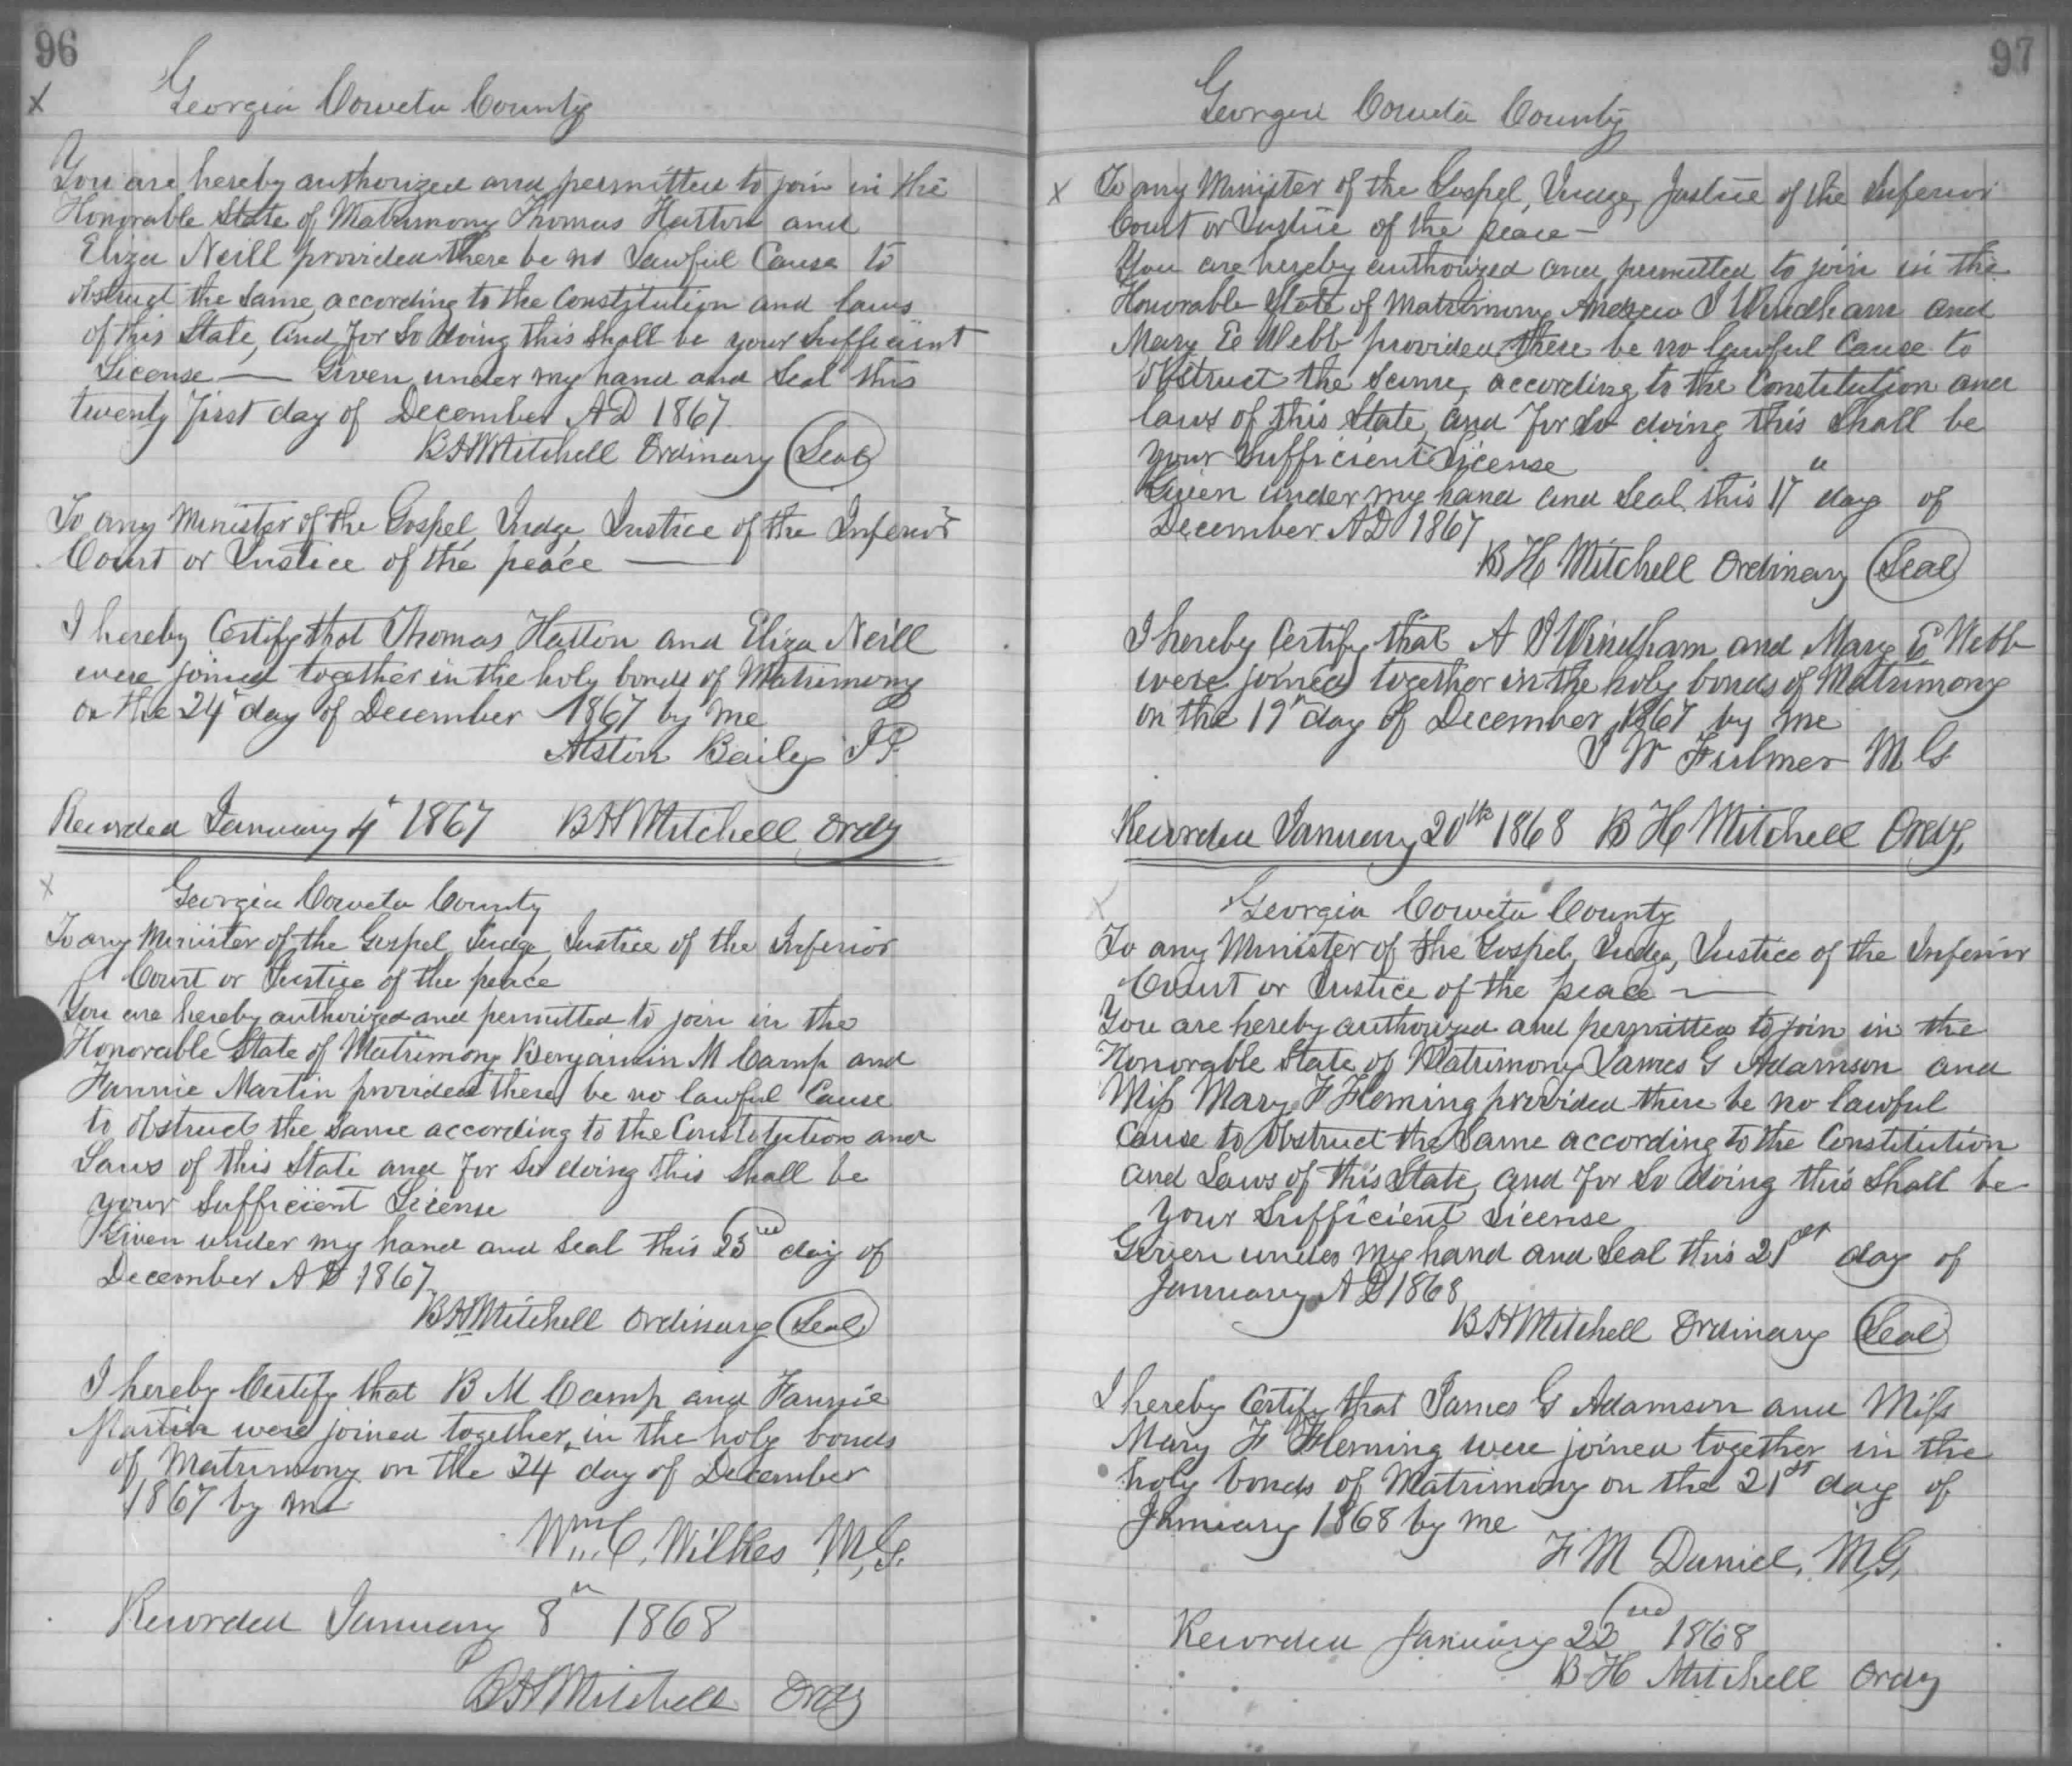 96
X
Georgia Coweta County
You are hereby authorized and permitted to join in the
Honorable State of Matrimony Thomas Hatton and
Eliza Neill provided there be no Lawful Cause to
obstruct the same, according to the Constitution and laws
of this State, and for so doing this shall be your sufficient
License — Given under my hand and Seal this
twenty first day of December AD 1867
BH Mitchell Ordinary (Seal)
To any Minister of the Gospel, Judge, Justice of the Inferior
Court or Justice of the peace —
I hereby Certify that Thomas Hatton and Eliza Neill
were joined together in the holy bonds of Matrimony
on the 24" day of December 1867 by me
Alston Bailey JP.
Recorded January 4" 1867 BH Mitchell Ordy
X
Georgia Coweta County
To any Minister of the Gospel, Judge, Justice of the Inferior
Court or Justice of the peace
You are hereby authorized and permitted to join in the
Honorable State of Matrimony Benjamin M Camp and
Fannie Martin provided there be no lawful Cause
to obstruct the same according to the Constitution and
Laws of this State and for so doing this shall be
your sufficient License
Given under my hand and Seal this 23rd day of
December AD 1867
BH Mitchell Ordinary (Seal)
I hereby Certify that B M Camp and Fannie
Martin were joined together, in the holy bonds
of Matrimony on the 24" day of December
1867 by me
Wm. C. Wilkes M,G.
Recorded January 8th 1868
BH Mitchell Ordy
97
Georgia Coweta County
X
To any Minister of the Gospel, Judge, Justice of the Inferior
Court or Justice of the peace —
You are hereby authorized and permitted to join in the
Honorable State of Matrimony Andrew J Windham and
Mary E Webb provided there be no lawful Cause to
Obstruct the same, according to the Constitution and
laws of this State, and for so doing this shall be
your Sufficient License
Given under my hand and Seal this 17" day of
December AD 1867
B H Mitchell Ordinary (Seal)
I hereby Certify that A J Windham and Mary E Webb
were joined together in the holy bonds of Matrimony
on the 19th day of December 1867 by me
J W Fulmer M G
Recorded January 20th 1868 B H Mitchell Ordy,
X
Georgia Coweta County
To any Minister of the Gospel, Judge, Justice of the Inferior
Court or Justice of the peace —
You are hereby authorized and permitted to join in the
Honorable State of Matrimony James G Adamson and
Miss Mary F Fleming provided there be no lawful
Cause to Obstruct the same according to the Constitution
and Laws of this State, and for so doing this shall be
your Sufficient License
Given under my hand and Seal this 21st day of
January AD 1868
BH Mitchell Ordinary (Seal)
I hereby Certify that James G Adamson and Miss
Mary F Fleming were joined together in the
holy bonds of Matrimony on the 21st day of
January 1868 by me
F M Daniel, M,G,
Recorded January 22nd 1868
B H Mitchell Ordy